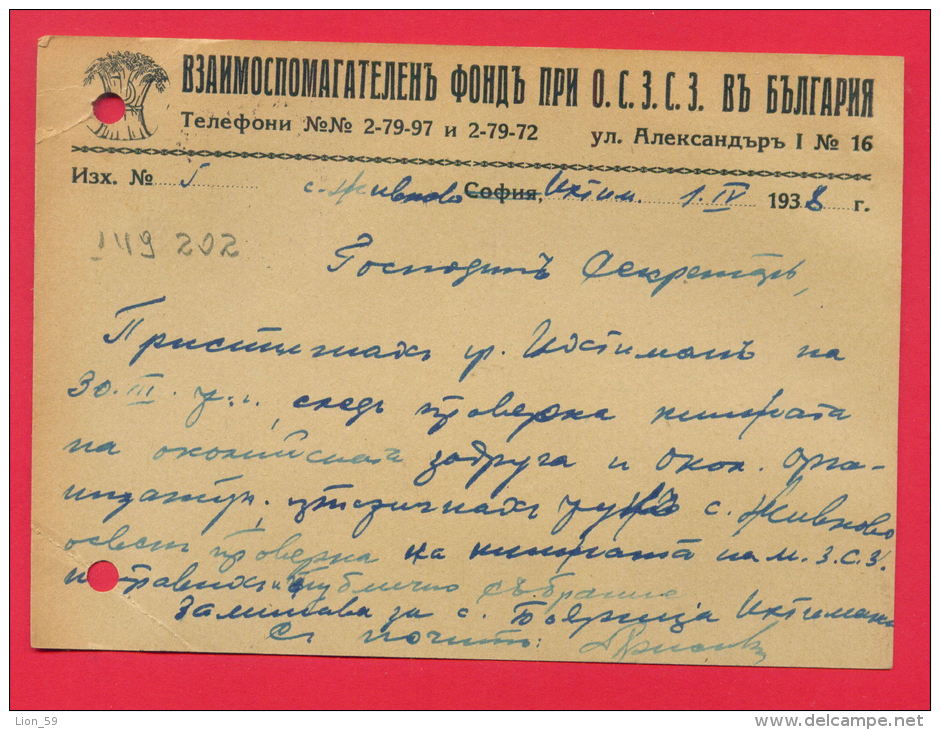 ВЗАИМОСПОМАГАТЕЛЕНЪ ФОНДЪ ПРИ О.С.З.С.З. ВЪ БЪЛГАРИЯ
Телефони №№ 2-79-97 и 2-79-72 ул. Александъръ I № 16
Изх. № 5 с. Живково София, Ихтим. 1.IV 1938 г.
149 202
Господинъ Секретарь,
Пристигнахъ гр. Ихтиманъ на
30.III. т.г., следъ проверка книжата
на околийската задруга и окол. Орга-
с. Живково
освенъ проверка на книжата на м. З.С.З.
направихъ и публично събрание
Заминавам за с. Боерица Ихтиманс
Съ почитъ:
Lion_59
www.delcampe.net